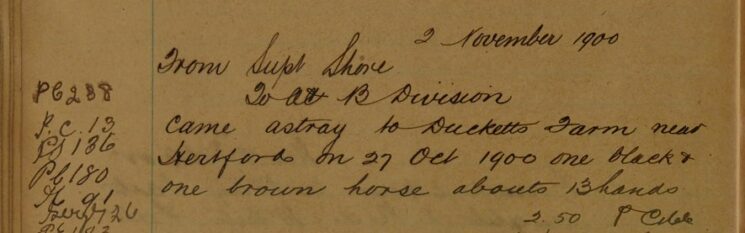 2 November 1900
From Supt Shore
To all B Division
Came astray to Ducketts Farm near
Hertford on 27 Oct 1900 one black &
one brown horse about 13 hands
2.50 P
PC 238
P.C. 13
PS 136
PC 180
91
Serg 126